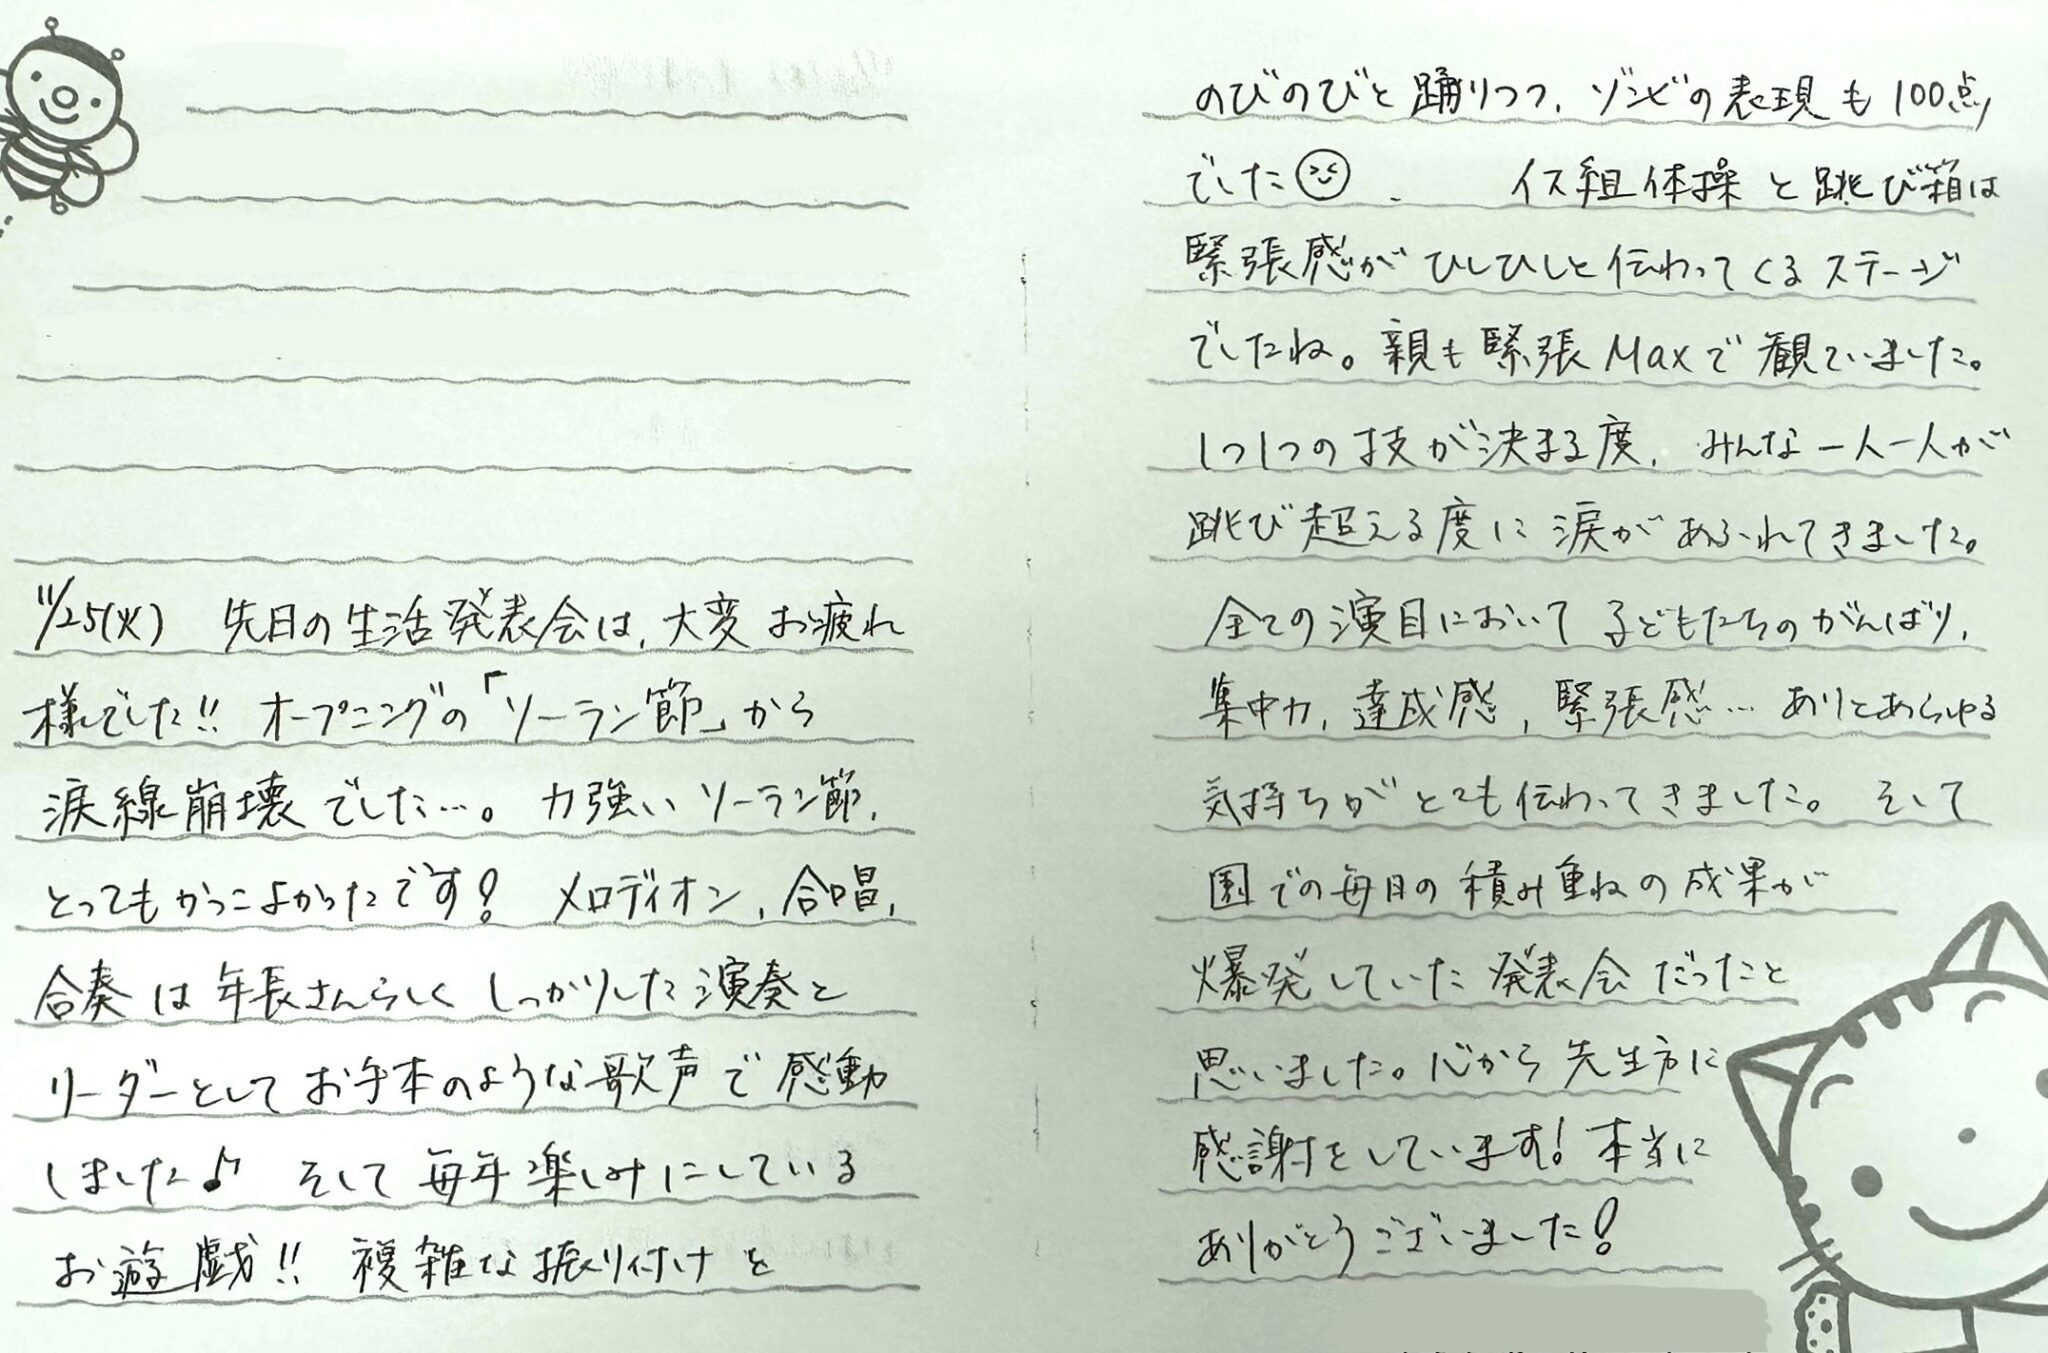 11/25(火) 先日の生活発表会は、大変お疲れ
様でした!! オープニングの「ソーラン節」から
涙線崩壊でした…。力強いソーラン節、
とってもかっこよかったです! メロディオン、合唱、
合奏は年長さんらしくしっかりした演奏と
リーダーとしてお手本のような歌声で感動
しました♪ そして毎年楽しみにしている
お遊戯!! 複雑な振り付けを
のびのびと踊りつつ、ゾンビの表現も100点
でした😆。 イス組体操と跳び箱は
緊張感がひしひしと伝わってくるステージ
でしたね。親も緊張Maxで観ていました。
1つ1つの技が決まる度、みんな一人一人が
跳び超える度に涙があふれてきました。
全ての演目において子どもたちのがんばり、
集中力、達成感、緊張感…ありとあらゆる
気持ちがとても伝わってきました。そして
園での毎日の積み重ねの成果が
爆発していた発表会だったと
思いました。心から先生方に
感謝をしています!本当に
ありがとうございました!